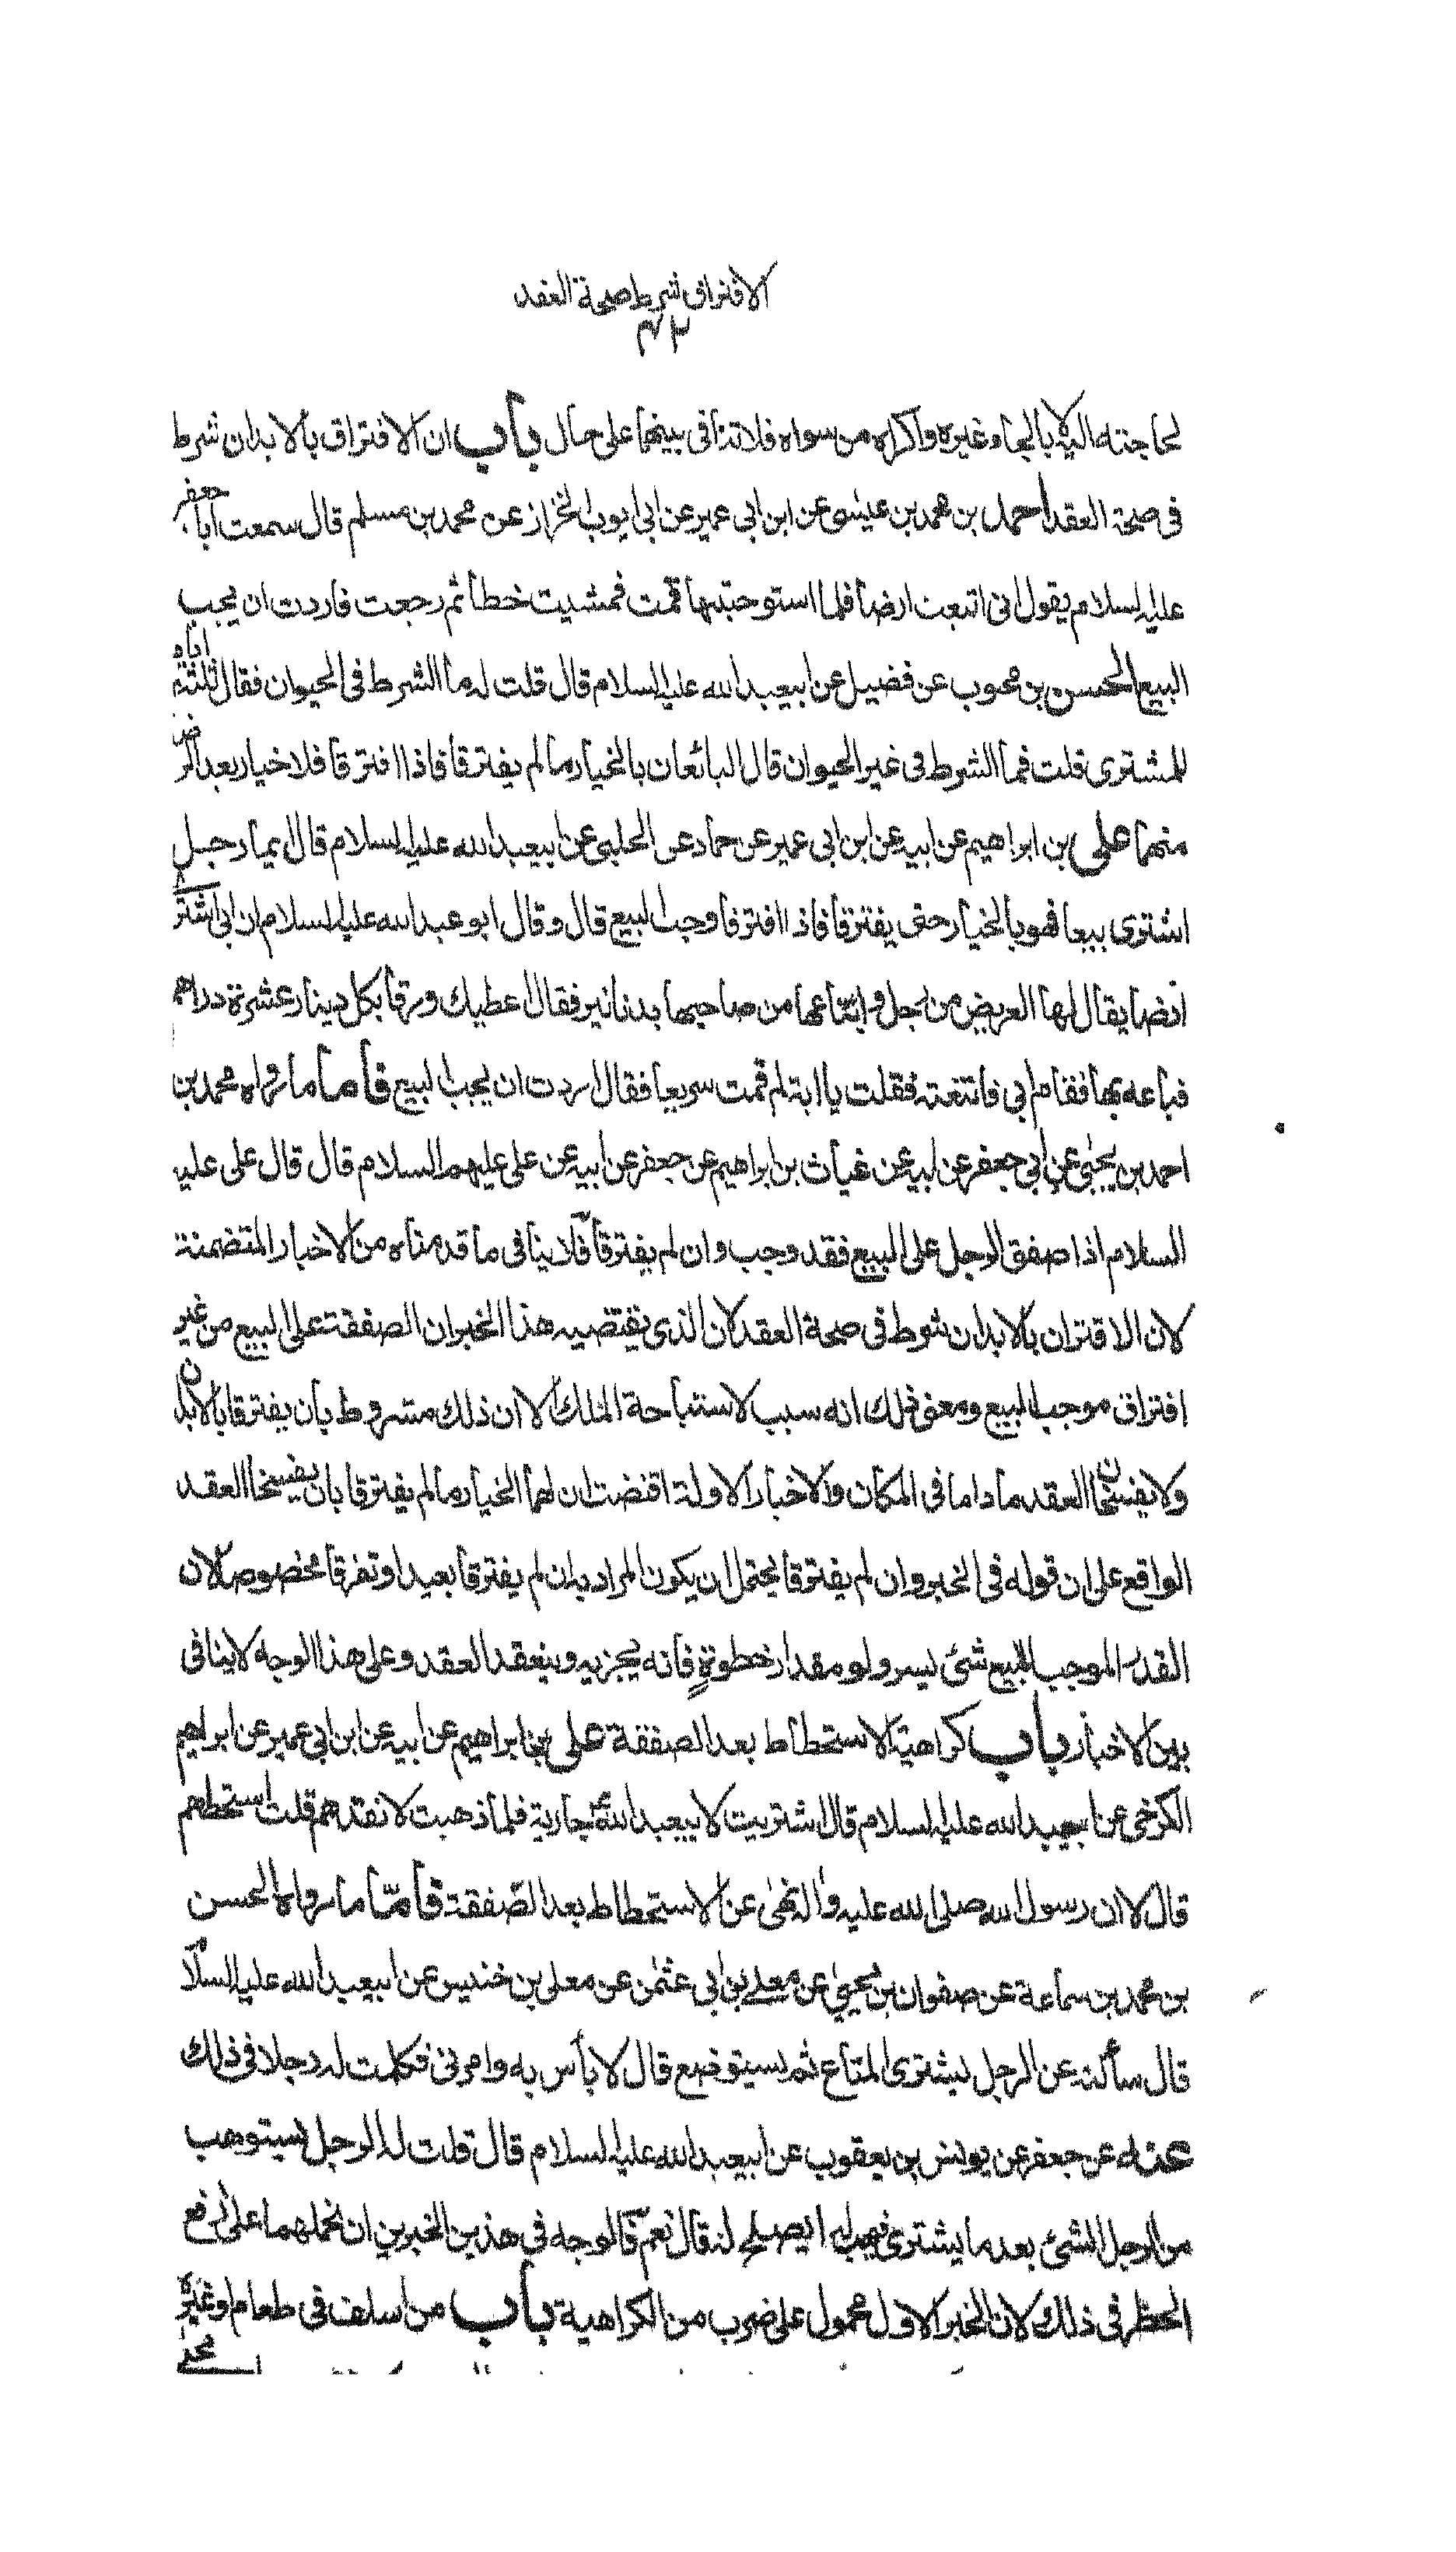 الافتراق شرط صحة العقد
٤٢
لحاجته اليه لا بالجاء غيره واكراه من سواه فلا تنافى بينهما على حال باب ان الافتراق بالابدان شرط
فى صحة العقد احمد بن محمد بن عيسى عن ابن ابى عمير عن ابى ايوب الخزاز عن محمد بن مسلم قال سمعت ابا جعفر
عليه السلام يقول انى ابتعت ارضا فلما استوجبتها قمت فمشيت خطأ ثم رجعت فاردت ان يجب
البيع الحسن بن محبوب عن فضيل عن ابيعبد الله عليه السلام قال قلت له ما الشرط فى الحيوان فقال ثلثة ايام
للمشترى قلت فما الشرط فى غير الحيوان قال البائعان بالخيار ما لم يفترقا فاذا افترقا فلا خيار بعد الرضا
منهما على بن ابراهيم عن ابيه عن ابن ابى عمير عن حماد عن الحلبى عن ابيعبد الله عليه السلام قال ايما رجل
اشترى بيعا فهو بالخيار حتى يفترقا فاذا افترقا وجب البيع قال وقال ابو عبد الله عليه السلام ان ابى اشترى
ارضا يقال لها العريض من رجل وابتاعها من صاحبها بدنانير فقال اعطيك ورقا بكل دينار عشرة دراهم
فباعه بها فقام ابى فاتبعته فقلت يا ابة لم قمت سريعا فقال اردت ان يجب البيع فأما ما رواه محمد بن
احمد بن يحيى عن ابى جعفر عن ابيه عن غياث بن ابراهيم عن جعفر عن ابيه عن على عليهم السلام قال قال على عليه
السلام اذا صفق الرجل على البيع فقد وجب وان لم يفترقا فلا ينافى ما قدمناه من الاخبار المتضمنة
لان الافتران بالابدان شرط فى صحة العقد لان الذى يقتضيه هذا الخبر ان الصفقة على البيع من غير
افتراق موجب البيع ومعنى ذلك انه سبب لاستباحة الملك الا ان ذلك مشروط بأن يفترقا بالابدان
ولا يفسخا العقد ما داما فى المكان والاخبار الاولة اقتضت ان لهما الخيار ما لم يفترقا بان يفسخا العقد
الواقع على ان قوله فى الخبر وان لم يفترقا يحتمل ان يكون المراد به ان لم يفترقا بعيدا وتفرقا مخصوصا لان
القدر الموجب للبيع شئ يسير ولو مقدار خطوة فانه يجزيه وينعقد العقد وعلى هذا الوجه لا ينافى
بين الاخبار باب كراهية الاستحطاط بعد الصفقة على بن ابراهيم عن ابيه عن ابن ابى عمير عن ابراهيم
الكرخى عن ابيعبد الله عليه السلام قال اشتريت لابيعبد الله ع جارية فلما ذهبت لانقدهم قلت استحطهم
قال لا ان رسول الله صلى الله عليه واله نهى عن الاستحطاط بعد الصفقة فأما ما رواه الحسن
بن محمد بن سماعة عن صفوان بن يحيى عن معلى بن ابى عثمن عن معلى بن خنيس عن ابيعبد الله عليه السلام
قال سألته عن الرجل ليشترى المتاع ثم يستوضع قال لا بأس به وامرنى فكلمت له رجلا فى ذلك
عنه عن جعفر عن يونس بن يعقوب عن ابيعبد الله عليه السلام قال قلت له الرجل يستوهب
من الرجل الشئ بعد ما يشترى فيهب له ايصلح له قال نعم فالوجه فى هذين الخبرين ان نحملهما على رفع
الحظر فى ذلك لان الخبر الاول محمول على ضرب من الكراهية باب من اسلف فى طعام او غيره